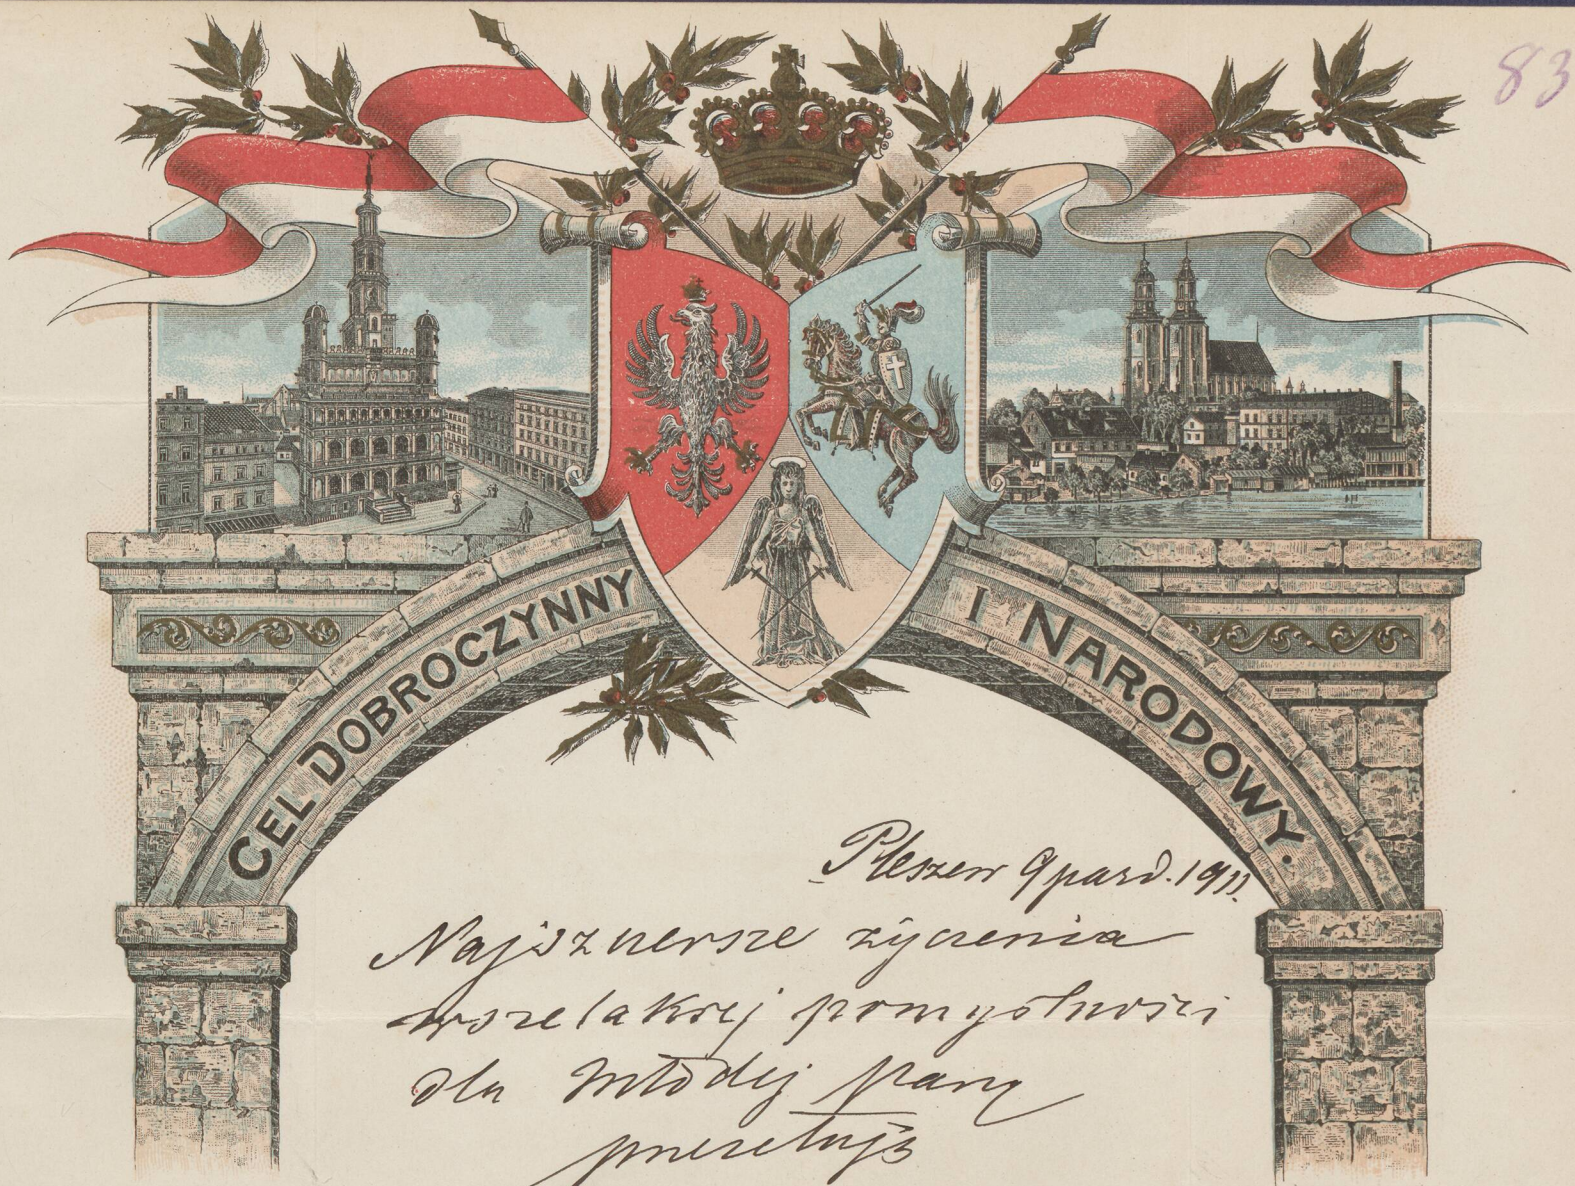 83
CEL DOBROCZYNNY I NARODOWY.
Pleszew 9 paźd. 1911.
Najszczersze życzenia
wszelakiej pomyślności
dla Młodej Pary
przesyłają